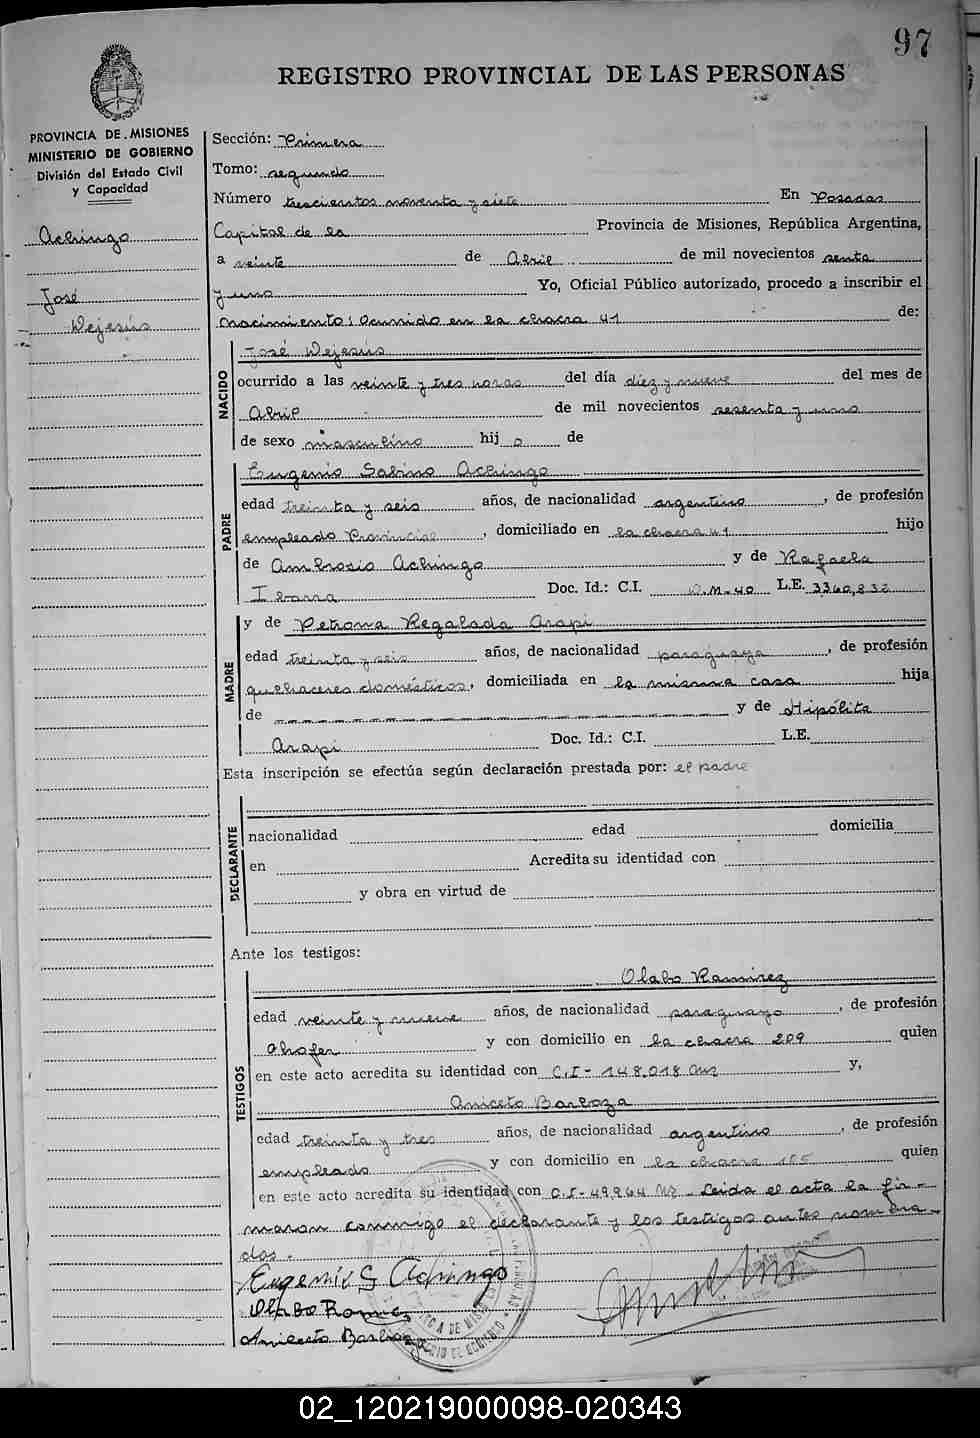 97
REGISTRO PROVINCIAL DE LAS PERSONAS
PROVINCIA DE MISIONES
MINISTERIO DE GOBIERNO
División del Estado Civil
y Capacidad
Achingo
José
Dejesús
Sección: Primera
Tomo: segundo
Número trescientos noventa y siete En Posadas
Capital de la Provincia de Misiones, República Argentina,
a veinte de Abril de mil novecientos senta
y uno Yo, Oficial Público autorizado, procedo a inscribir el
nacimiento: ocurrido en la chacra 41 de:
NACIDO
José Dejesús
ocurrido a las veinte y tres horas del día diez y nueve del mes de
Abril de mil novecientos sesenta y uno
de sexo masculino hijo de
PADRE
Eugenio Sabino Achingo
edad treinta y seis años, de nacionalidad argentino, de profesión
empleado Provincial, domiciliado en la chacra 41 hijo
de Ambrosio Achingo y de Rafaela
Ibarra Doc. Id.: C.I. D.M. 40 L.E. 3360,833
MADRE
y de Petrona Regalada Arapi
edad treinta y seis años, de nacionalidad paraguaya, de profesión
quehaceres domésticos, domiciliada en la misma casa hija
de y de Hipólita
Arapi Doc. Id.: C.I. L.E.
Esta inscripción se efectúa según declaración prestada por: el padre
DECLARANTE
nacionalidad edad domicilia
en Acredita su identidad con
y obra en virtud de
Ante los testigos:
TESTIGOS
Olabo Ramirez
edad veinte y nueve años, de nacionalidad paraguayo, de profesión
Chofer y con domicilio en la chacra 209 quien
en este acto acredita su identidad con C.I- 148.018 y,
Aniceto Barboza
edad treinta y tres años, de nacionalidad argentino, de profesión
empleado y con domicilio en la chacra 155 quien
en este acto acredita su identidad con C.I- 49,964 Leida el acta la fir-
maron conmigo el declarante y los testigos antes nombra-
dos.
Eugenio S Achingo
Olabo Ramirez
Aniceto Barboza
02_120219000098-020343